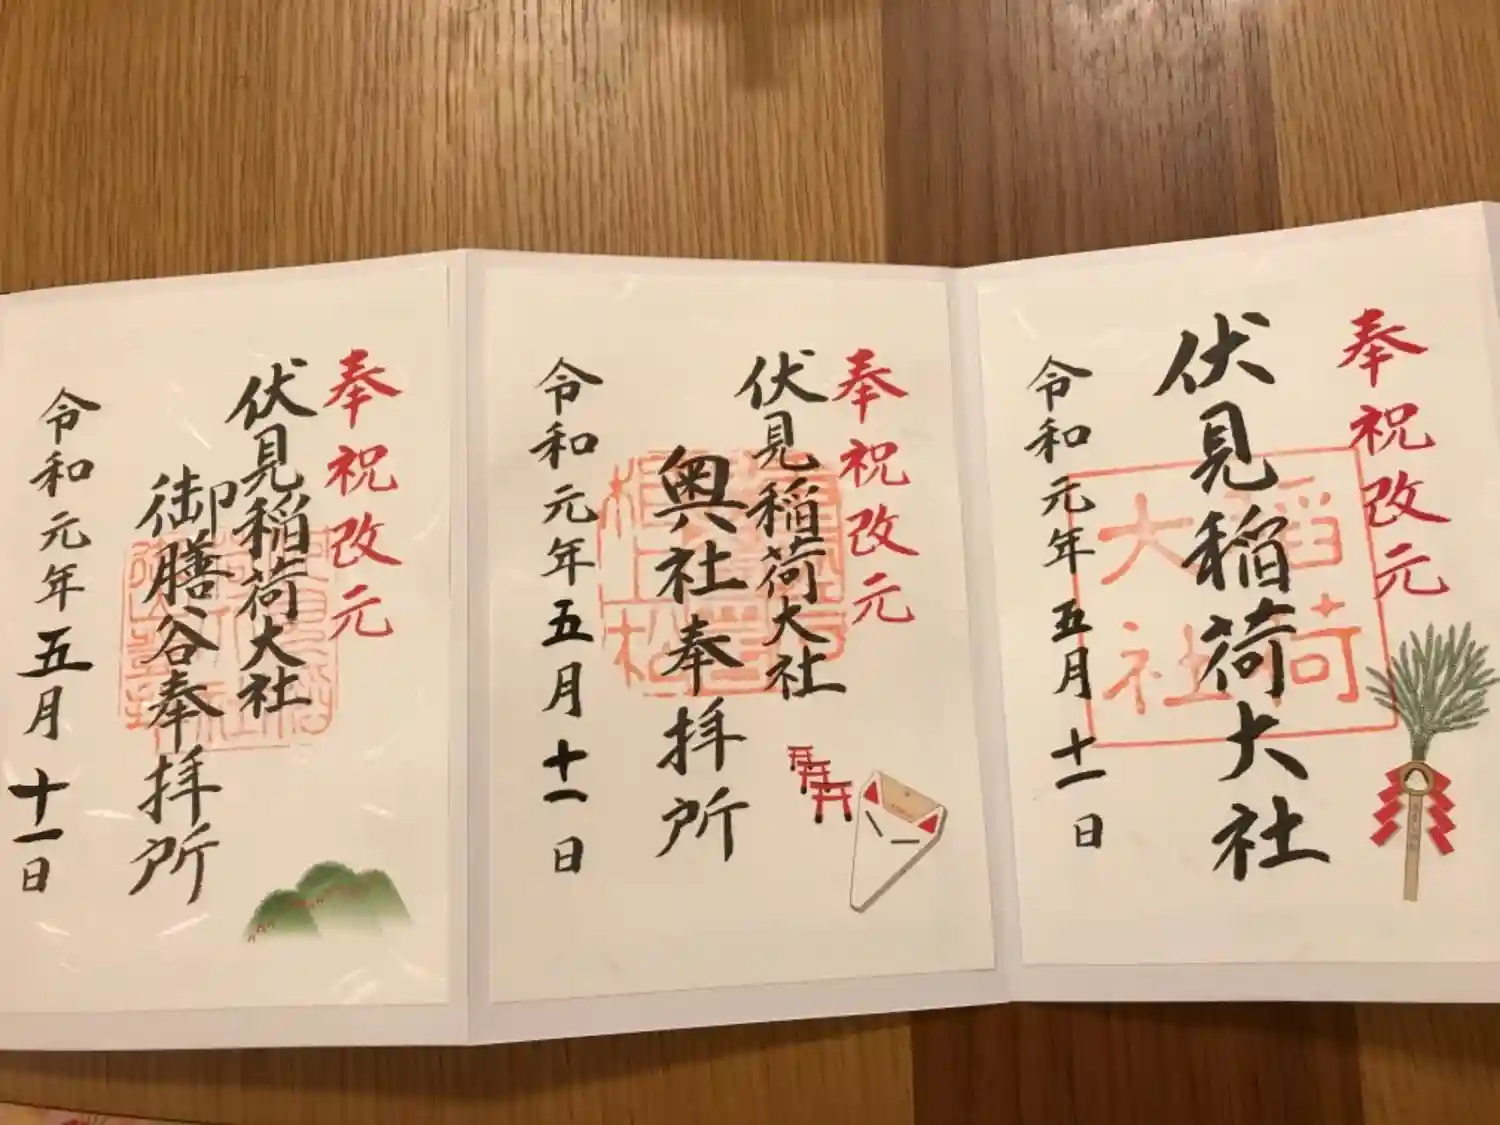 奉祝改元
伏見稲荷大社
稲荷
大社
令和元年五月十一日
奉祝改元
伏見稲荷大社
奥社奉拝所
令和元年五月十一日
奉祝改元
伏見稲荷大社
御膳谷奉拝所
令和元年五月十一日